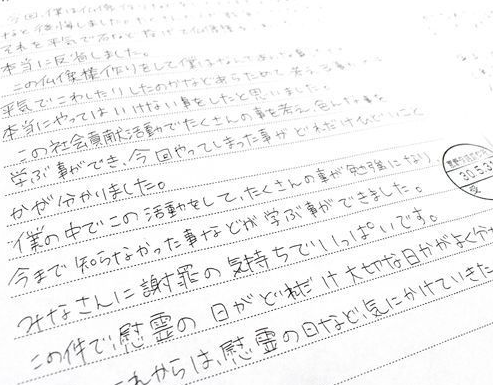 今回、僕は仏像
なと後悔しました
それを平気で石など投げて
本当に反省しました。
この仏像様作りをして僕はなんて
平気でこわしたりしたのかなとあらためて考え
本当にやってはいけない事をしたと思いました。
この社会貢献活動でたくさんの事を考え色んな事を
学ぶ事ができ、今回やってしまった事がどれだけひどいこと
かが分かりました。
僕の中でこの活動をして、たくさんの事が勉強になり
今まで知らなかった事などが学ぶ事ができました。
みなさんに謝罪の気持ちでいっぱいです。
この件で、慰霊の日がどれだけ大切な日かがよく分か
これからは、慰霊の日など気にかけていきた
30.5.3
受